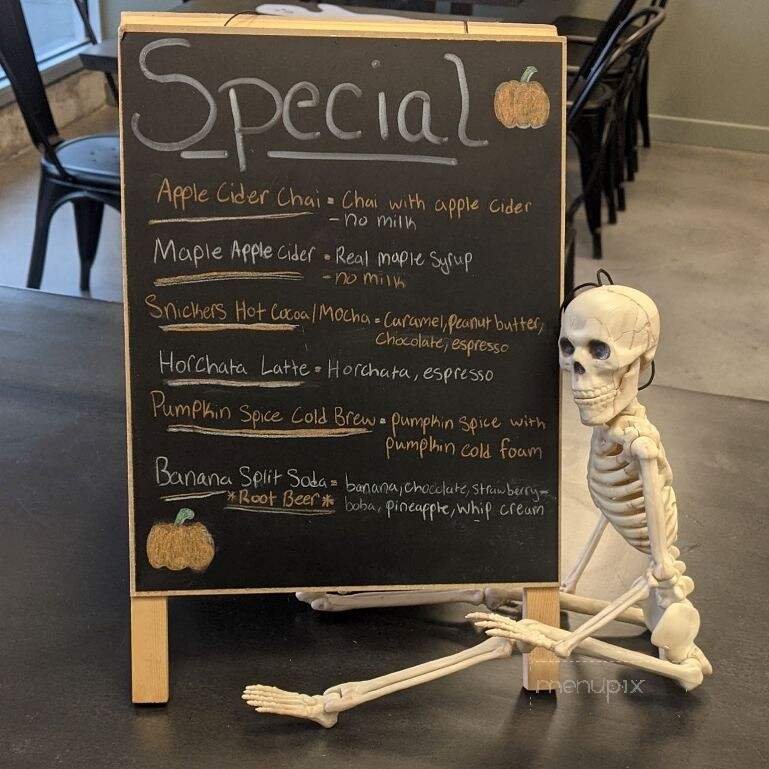 Special
Apple Cider Chai = Chai with apple cider
- no milk
Maple Apple Cider • Real maple syrup
- no milk
Snickers Hot Cocoa/Mocha = Caramel, peanut butter,
chocolate, espresso
Horchata Latte • Horchata, espresso
Pumpkin Spice Cold Brew = pumpkin spice with
pumpkin cold foam
Banana Split Soda = banana, chocolate, strawberry-
*Root Beer* boba, pineapple, whip cream
menupix